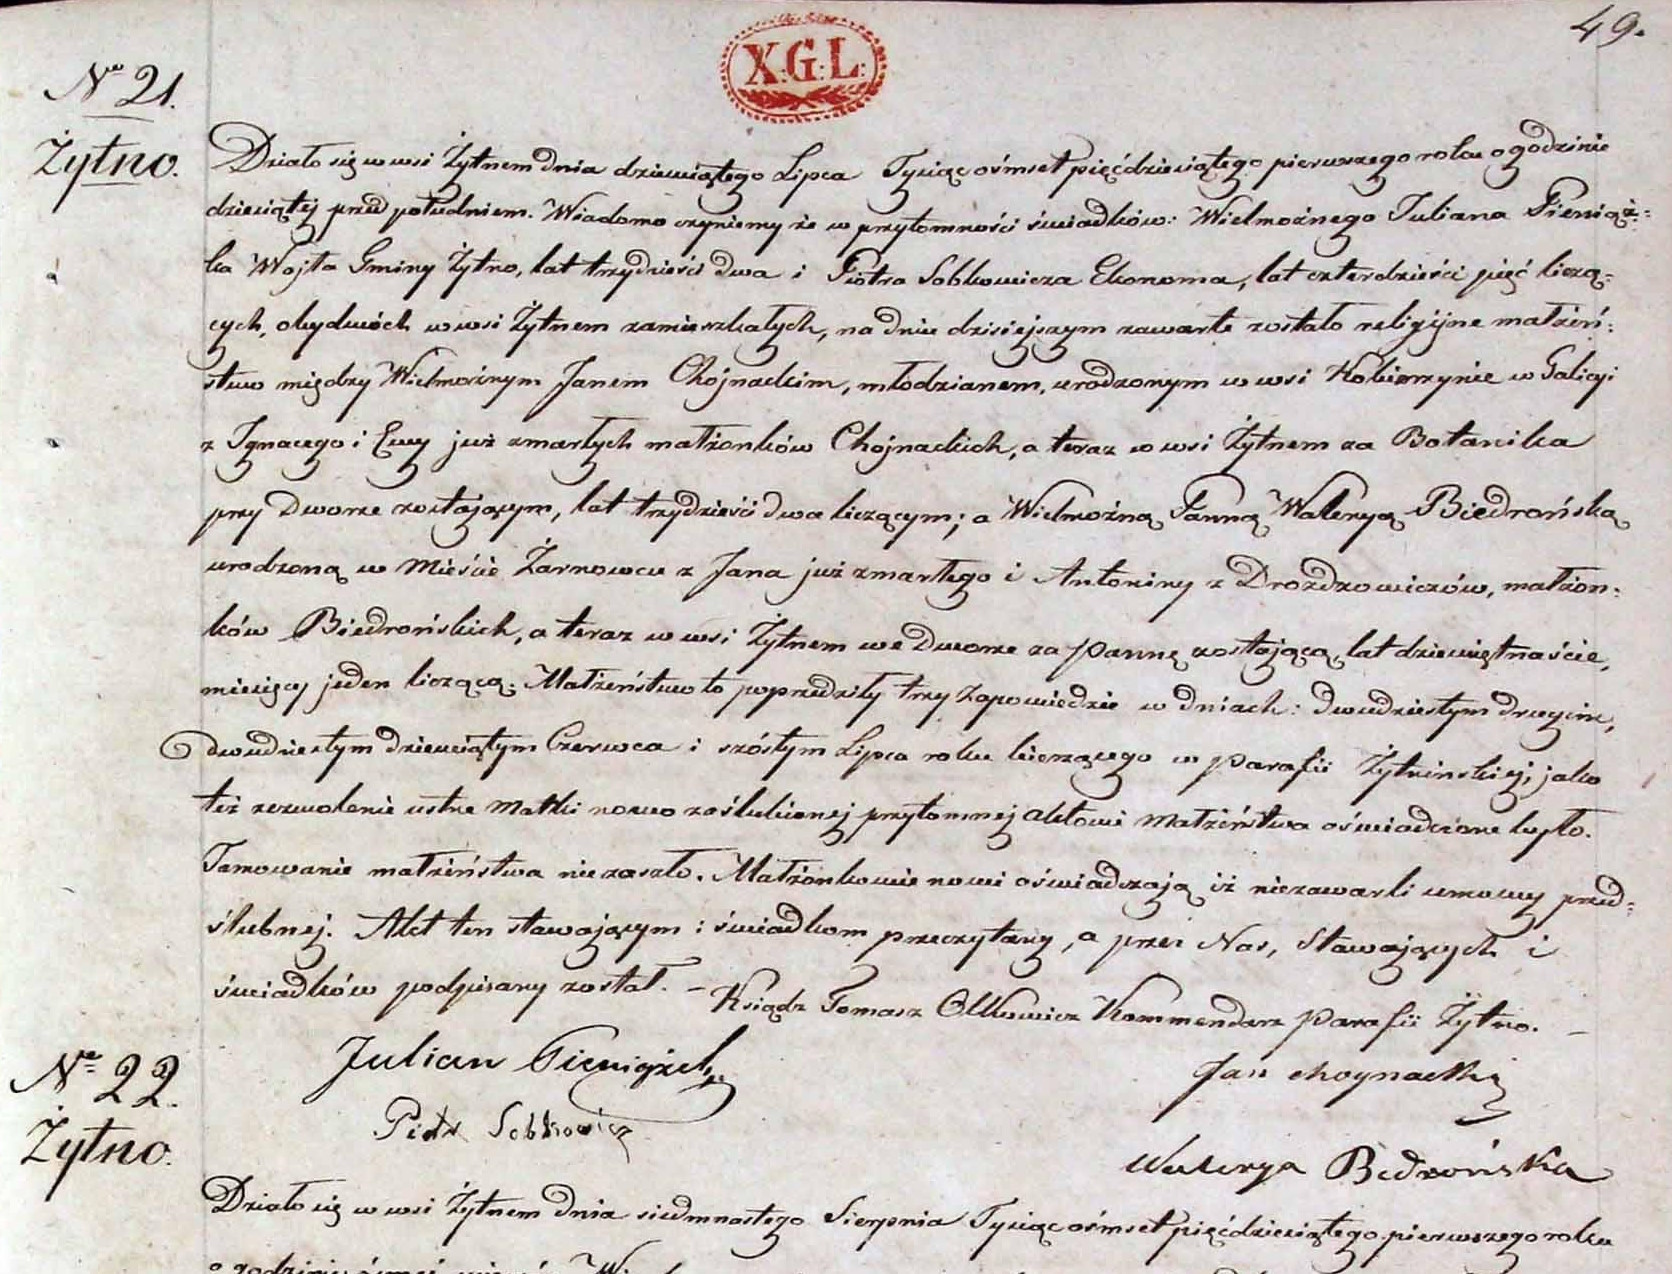 49.
X:G:L:
No 21.
Żytno.
Działo się w wsi Żytnem dnia dziewiątego Lipca Tysiąc ośmset pięćdziesiątego pierwszego roku o godzinie
dziesiątej przed południem. Wiadomo czyniemy że w przytomności świadków: Wielmożnego Juliana Pieniąż-
ka Wojta Gminy Żytno, lat trzydzieści dwa i Piotra Sobkowicza Ekonoma, lat czterdzieści pięć liczą-
cych, obydwóch w wsi Żytnem zamieszkałych, na dniu dzisiejszym zawarte zostało religijne małżeń-
stwo między Wielmożnym Janem Chojnackim, młodzianem, urodzonym w wsi Kobierzynie w Galicyi
z Ignacego i Ewy już zmarłych małżonków Chojnackich, a teraz w wsi Żytnem za Botanika
przy Dworze zostającym, lat trzydzieści dwa liczącym; a Wielmożną Panną Waleryą Biedrońską
urodzoną w Mieście Żarnowcu z Jana już zmarłego i Antoniny z Drozdzowiczów, małżon-
ków Biedrońskich, a teraz w wsi Żytnem we Dworze za pannę zostającą, lat dziewiętnaście,
miesięcy jeden liczącą. Małżeństwo to poprzedziły trzy zapowiedzie w dniach: dwudziestym drugim,
dwudziestym dziewiątym Czerwca i szóstym Lipca roku bieżącego w parafii Żytnińskiej, jako
też zezwolenie ustne Matki nowo zaślubionej przytomnej aktowi Małżeństwa oświadczone było.
Tamowanie małżeństwa nie zaszło. Małżonkowie nowi oświadczają iż niezawarli umowy przed-
ślubnej. Akt ten stawającym i świadkom przeczytany, a przez Nas, Stawających i
świadków podpisany został. – Ksiądz Tomasz Olkowicz Kommendarz parafii Żytno. –
Julian Pieniążek
Jan Choynacki
Piotr Sobkowicz
Walerya Bedrońska
No 22.
Żytno.
Działo się w wsi Żytnem dnia siedmnastego Sierpnia Tysiąc ośmset pięćdziesiątego pierwszego roku
o godzinie